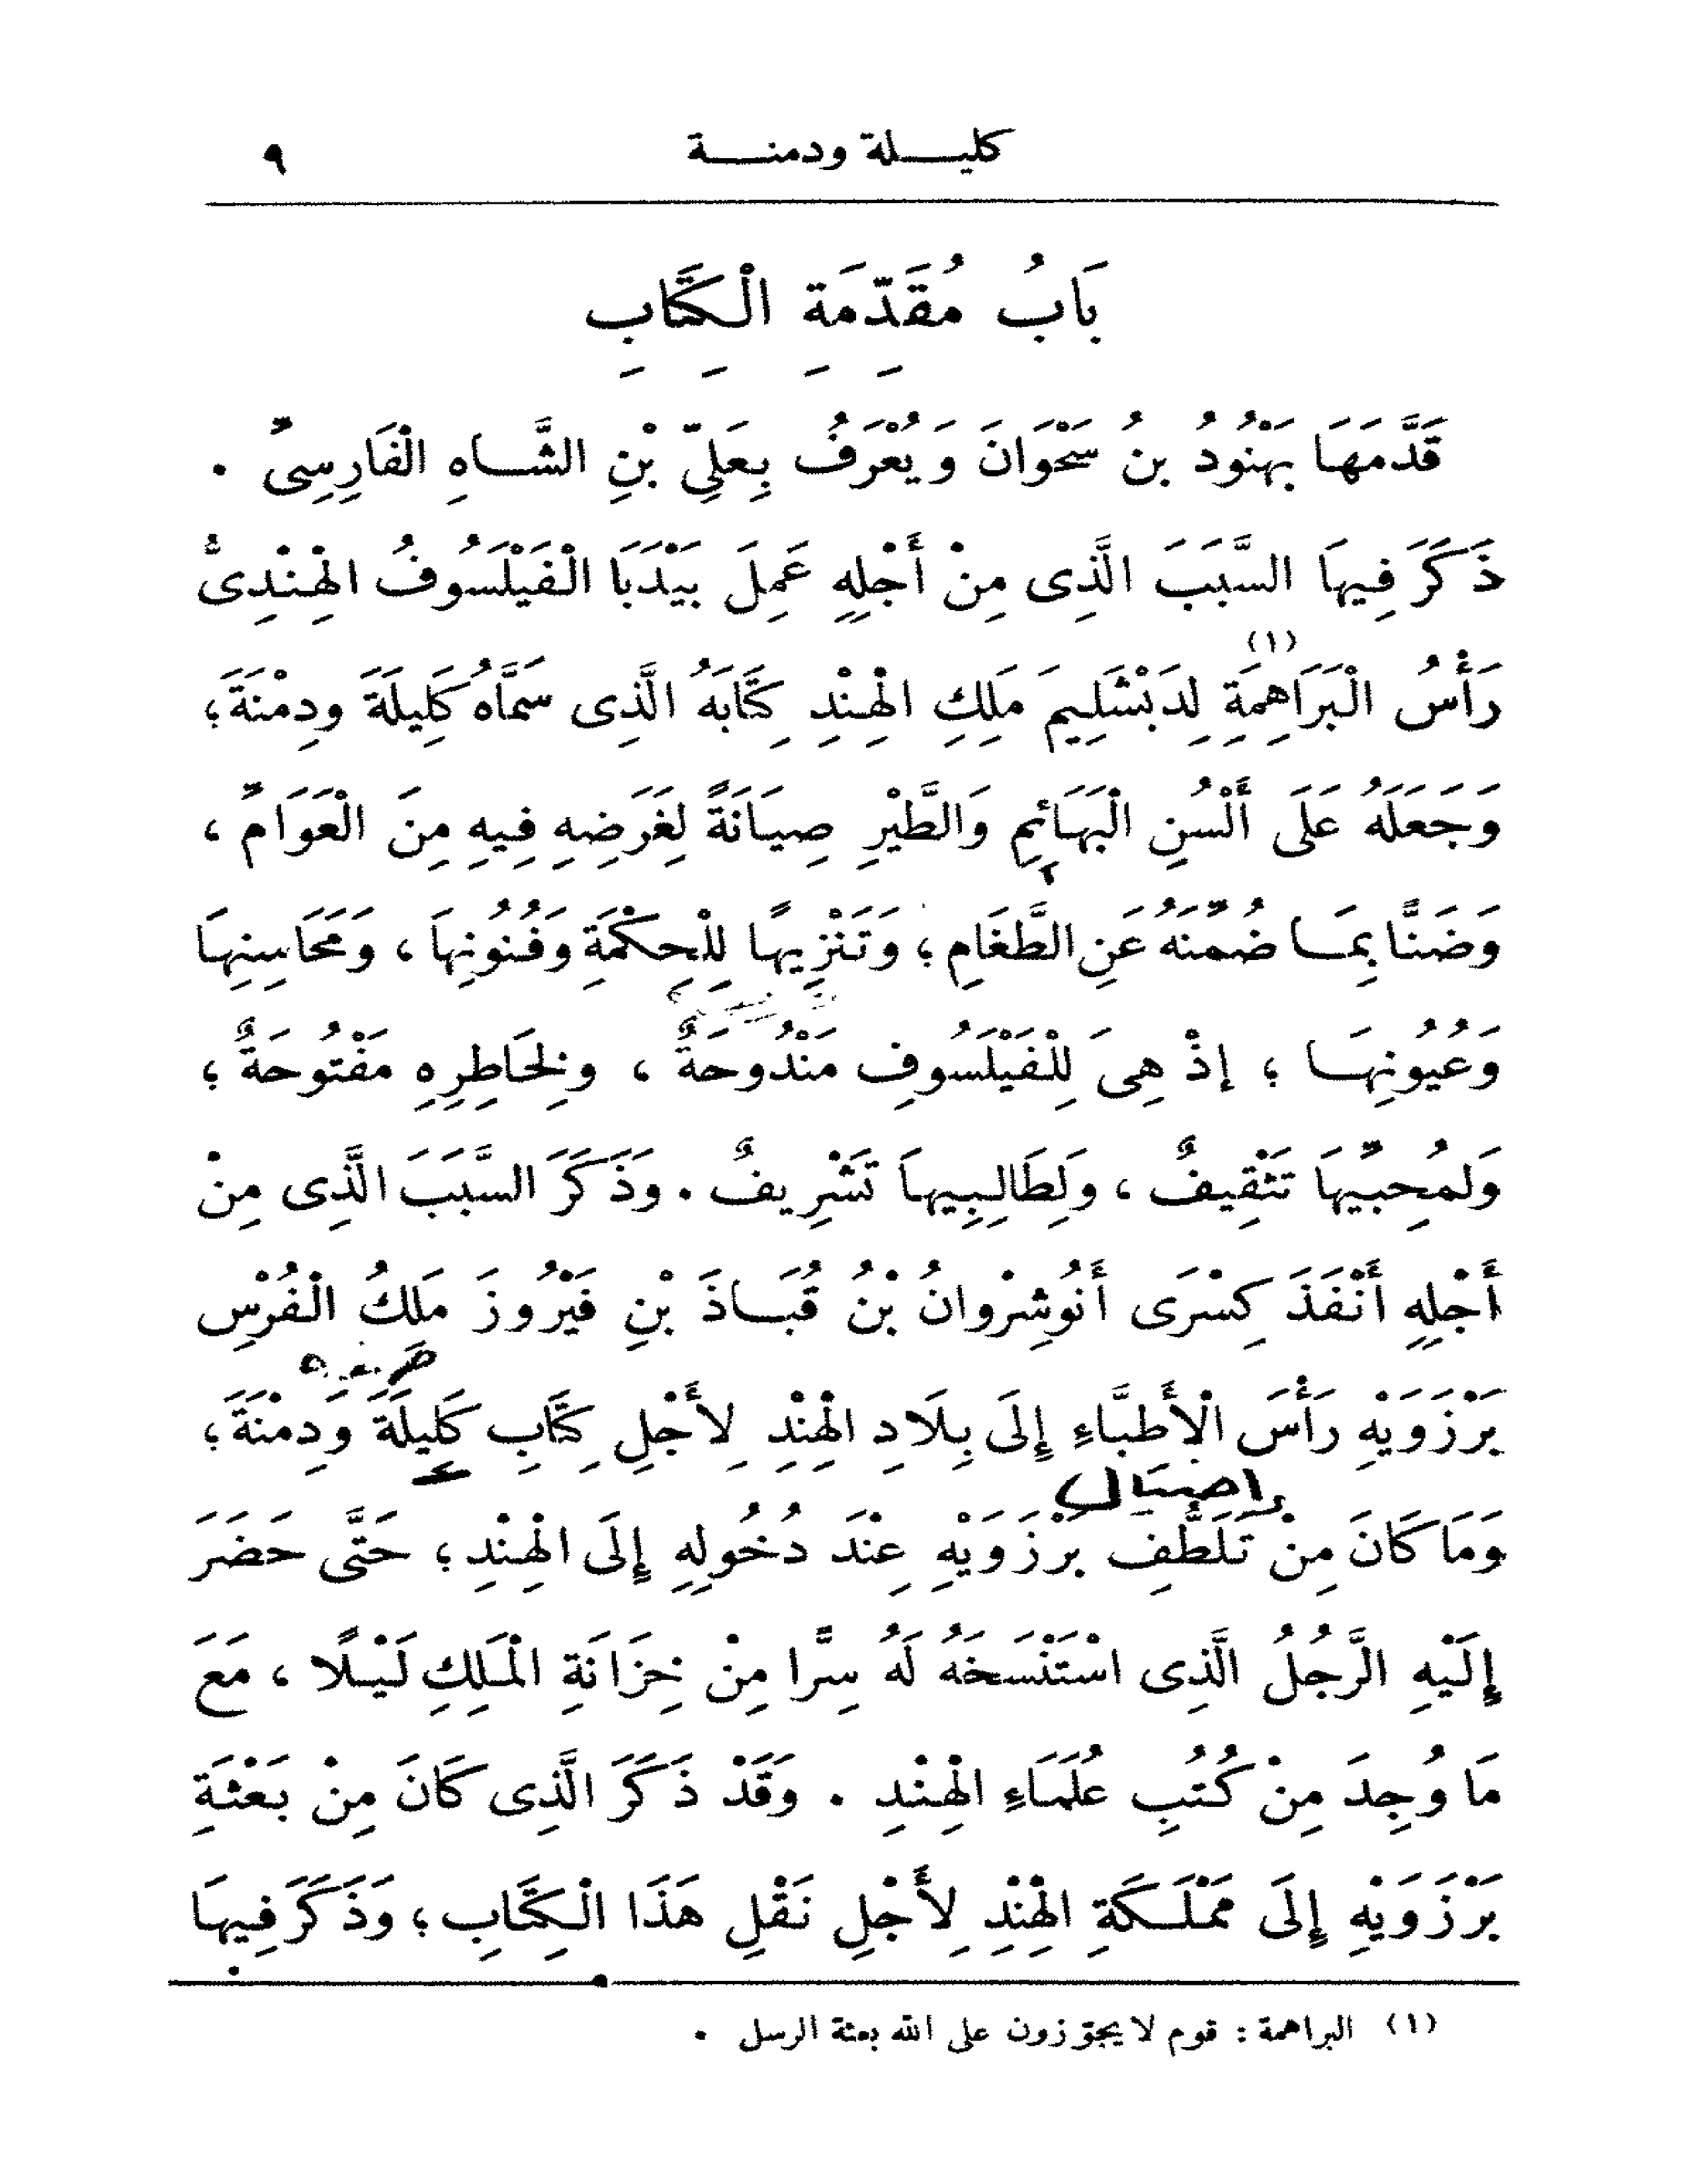 كليـــلة ودمنـــة ٩
بَابُ مُقَدِّمَةِ الْكِتَابِ
قَدَّمَهَا بَهْنُودُ بنُ سَحْوَانَ وَيُعْرَفُ بِعَلِيِّ بْنِ الشَّاهِ الْفَارِسِىِّ .
ذَكَرَ فِيهَا السَّبَبَ الَّذِى مِنْ أَجْلِهِ عَمِلَ بَيْدَبَا الْفَيْلَسُوفُ الْهِنْدِىُّ
رَأْسُ الْبَرَاهِمَةِ (١) لِدَبْشَلِيمَ مَلِكِ الْهِنْدِ كِتَابَهُ الَّذِى سَمَّاهُ كَلِيلَةَ ودِمْنَةَ؛
وَجَعَلَهُ عَلَى أَلْسُنِ الْبَهَائِمِ وَالطَّيْرِ صِيَانَةً لِغَرَضِهِ فِيهِ مِنَ الْعَوَامِّ ،
وَضَنًّا بِمَا ضُمِّنَهُ عَنِ الطَّغَامِ ؛ وَتَنْزِيهًا لِلْحِكْمَةِ وَفُنُونِهَا ، وَمَحَاسِنِهَا
وَعُيُونِهَا ؛ إذْ هِىَ لِلْفَيْلَسُوفِ مَنْدُوحَةٌ ، ولِخَاطِرِهِ مَفْتُوحَةٌ ؛
وَلمُحِبِّيهَا تَثْقِيفٌ ، ولِطَالِبِيهَا تَشْرِيفٌ . وَذَكَرَ السَّبَبَ الَّذِى مِنْ
أَجْلِهِ أَنْفَذَ كِسْرَى أَنُوشِرْوانُ بْنُ قُبَاذَ بْنِ فَيْرُوزَ مَلِكُ الْفُرْسِ
بَرْزَوَيْهِ رَأْسَ الْأَطِبَّاءِ إِلَى بِلَادِ الْهِنْدِ لِأَجْلِ كِتَابِ كَلِيلَةَ وَدِمْنَةَ؛
وَمَا كَانَ مِنْ تَلَطُّفِ بَرْزَوَيْهِ عِنْدَ دُخُولِهِ إِلَى الْهِنْدِ ؛ حَتَّى حَضَرَ
إِلَيْهِ الرَّجُلُ الَّذِى اسْتَنْسَخَهُ لَهُ سِرًّا مِنْ خِزَانَةِ الْمَلِكِ لَيْلًا ، مَعَ
مَا وُجِدَ مِنْ كُتُبِ عُلَمَاءِ الْهِنْدِ . وَقَدْ ذَكَرَ الَّذِى كَانَ مِنْ بَعْثَةِ
بَرْزَوَيْهِ إِلَى مَمْلَكَةِ الْهِنْدِ لِأَجْلِ نَقْلِ هَذَا الْكِتَابِ ؛ وَذَكَرَ فِيهَا
(١) البراهمة : قوم لا يجوّزون على الله بعثة الرسل .